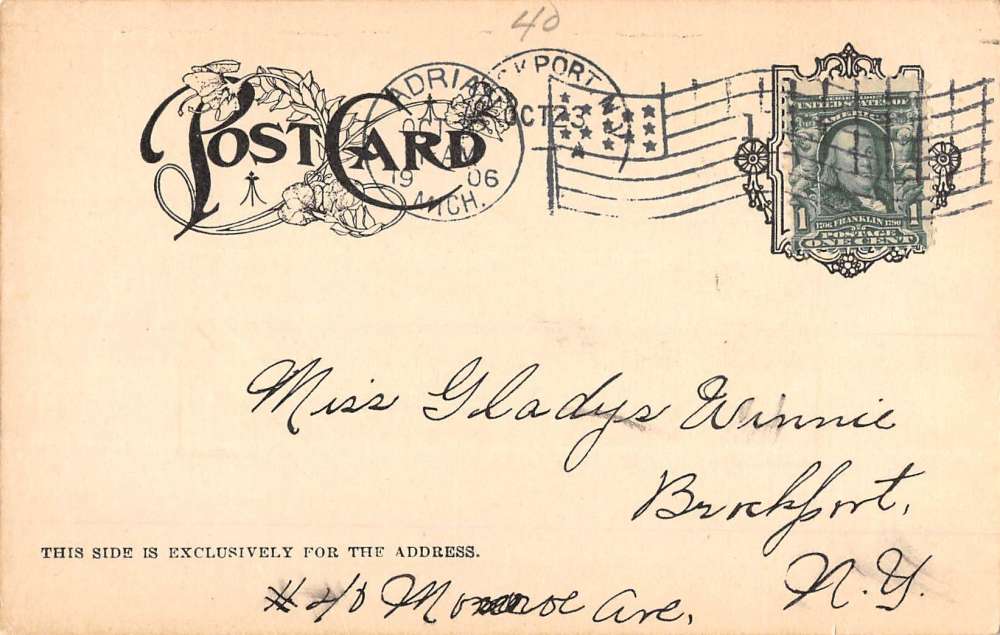 40
POST CARD
ADRIAN
MICH.
19 06
CKPORT
OCT 23
N
UNITED STATES OF
AMERICA
1 1
1706 FRANKLIN 1790
POSTAGE
ONE CENT
Miss Gladys Winnie
Brockport,
N.Y.
THIS SIDE IS EXCLUSIVELY FOR THE ADDRESS.
# 40 Monroe Ave.